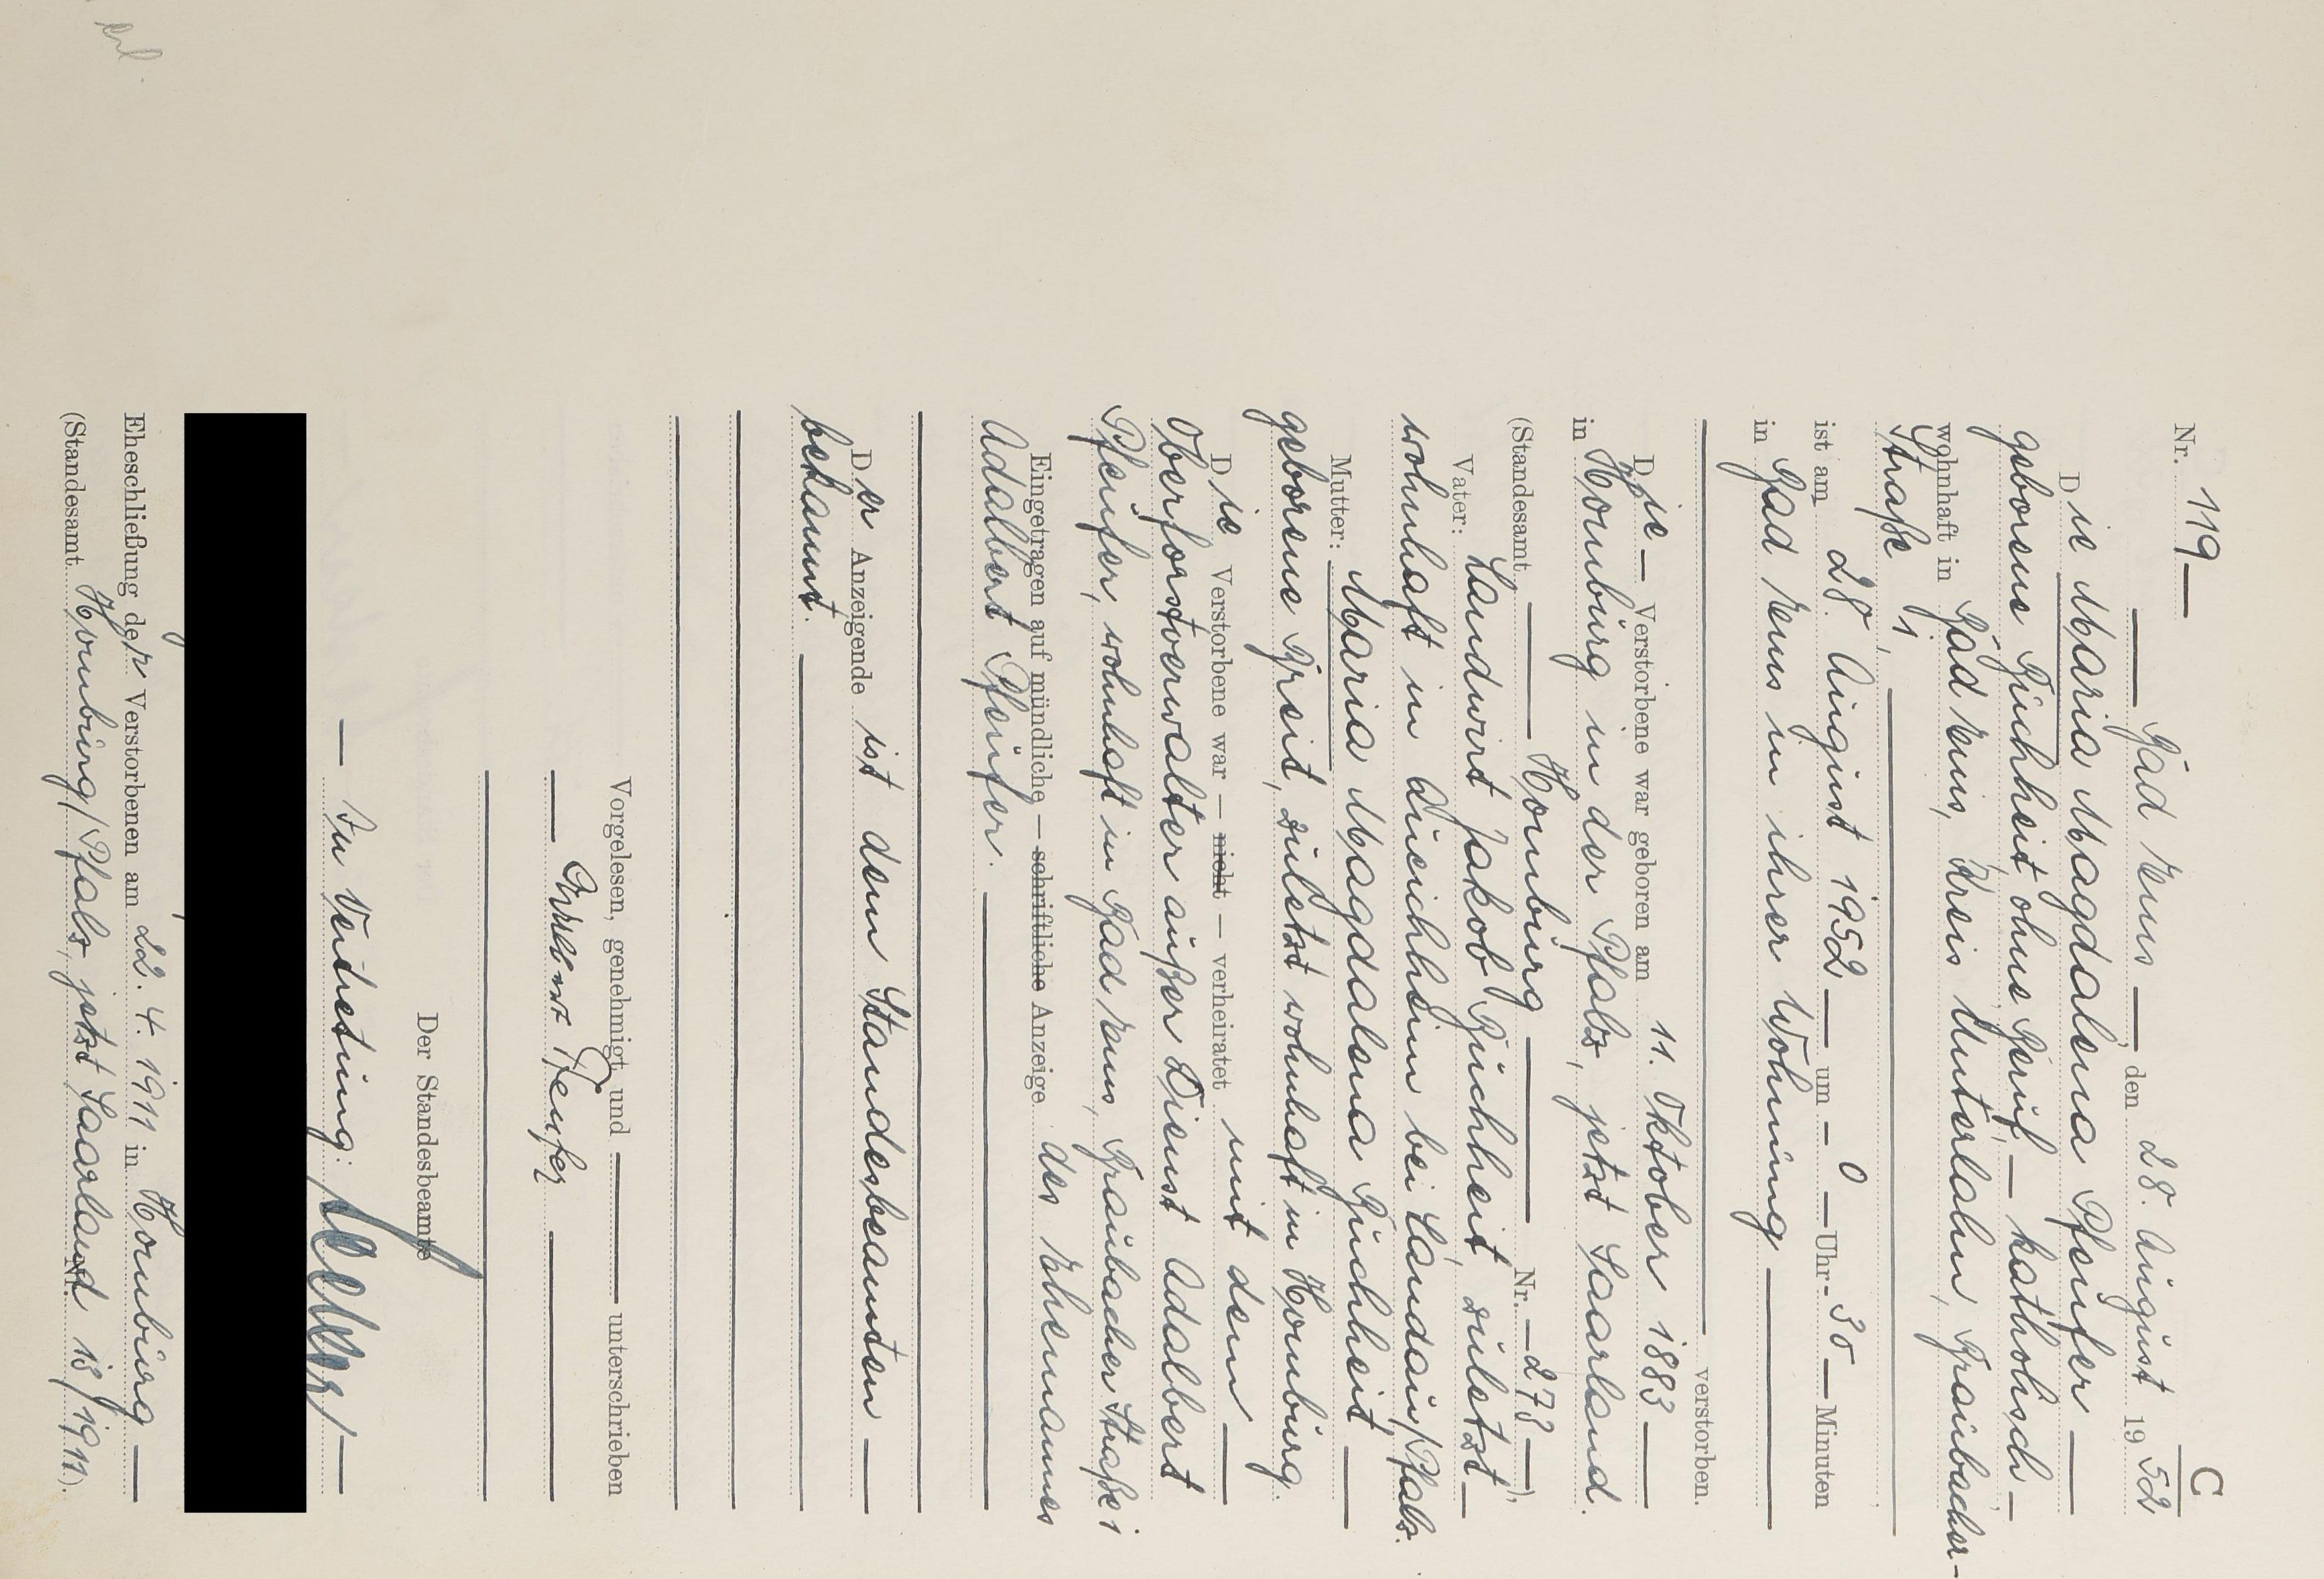 C
Nr. 119
Bad Ems den 28. August 1952
Die Maria Magdalena Pfeufer
geborene Buchheit, ohne Beruf, — katholisch —
wohnhaft in Bad Ems, Kreis Unterlahn, Braubacher-
Straße 1,
ist am 28. August 1952 um 0 Uhr 30 Minuten
in Bad Ems in ihrer Wohnung
verstorben.
Die Verstorbene war geboren am 11. Oktober 1883
in Homburg in der Pfalz, jetzt Saarland.
(Standesamt Homburg Nr. 273 ),
Vater: Landwirt Jakob Buchheit, zuletzt
wohnhaft in Queichheim bei Landau/Pfalz.
Mutter: Maria Magdalena Buchheit
geborene Breit, zuletzt wohnhaft in Homburg.
Die Verstorbene war — nicht — verheiratet mit dem
Oberforstverwalter außer Dienst Adalbert
Pfeufer, wohnhaft in Bad Ems, Braubacher Straße 1
Eingetragen auf mündliche — schriftliche Anzeige des Ehemannes
Adalbert Pfeufer.
Der Anzeigende ist dem Standesbeamten
bekannt.
Vorgelesen, genehmigt und unterschrieben
Pfeufer
Der Standesbeamte
In Vertretung:
Eheschließung der Verstorbenen am 22. 4. 1911 in Homburg
(Standesamt Homburg/Pfalz, jetzt Saarland Nr. 13/1911).